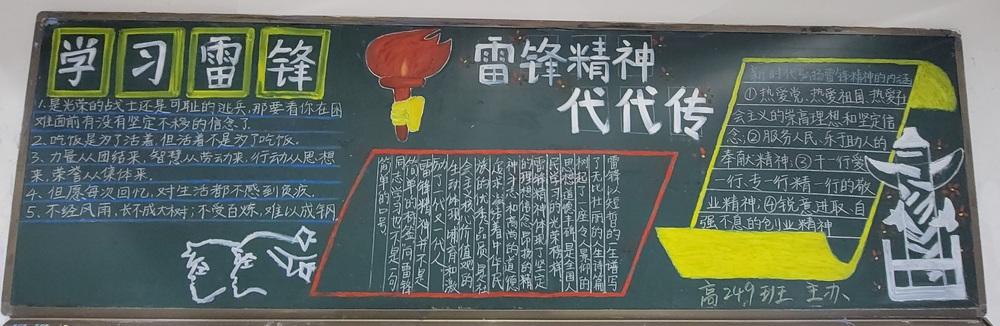 学习雷锋
1.是光荣的战士还是可耻的逃兵,那要看你在困
难面前有没有坚定不移的信念了.
2.吃饭是为了活着,但活着不是为了吃饭.
3.力量从团结来,智慧从劳动来,行动从思想
来,荣誉从集体来.
4.但愿每次回忆,对生活都不感到负疚.
5.不经风雨,长不成大树;不受百炼,难以成钢
雷锋精神
代代传
雷锋以短暂的一生谱写
了无比壮丽的人生诗篇
树起了一座令人景仰的
思想道德丰碑是全国人
民学习的光荣榜样
雷锋精神体现了坚定
的理想信念昂扬的精
神斗志和高尚的道德
追求凝结着中华民
族的优秀品质是社
会主义核心价值观的
生动体现哺育和激
励了一代又一代人
雷锋精神并不是
简单的标签向雷锋
同志学习也不是一句
简单的口号
新时代弘扬雷锋精神的内涵
①热爱党、热爱祖国、热爱社
会主义的崇高理想和坚定信
念;②服务人民、乐于助人的
奉献精神;③干一行爱
一行、专一行精一行的敬
业精神;④锐意进取、自
强不息的创业精神
高249班 主办